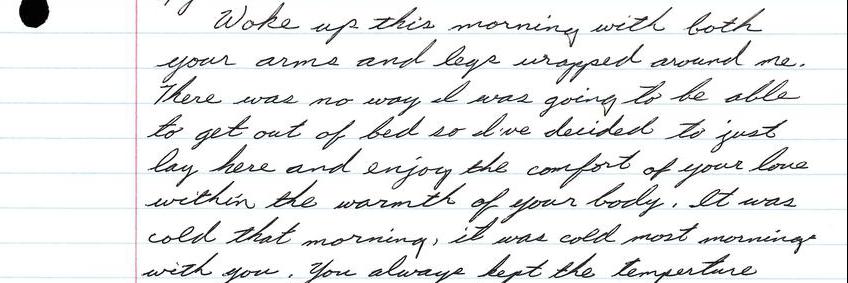 Woke up this morning with both
your arms and legs wrapped around me.
There was no way I was going to be able
to get out of bed so I've decided to just
lay here and enjoy the comfort of your love
within the warmth of your body. It was
cold that morning, it was cold most mornings
with you. You always kept the temperture